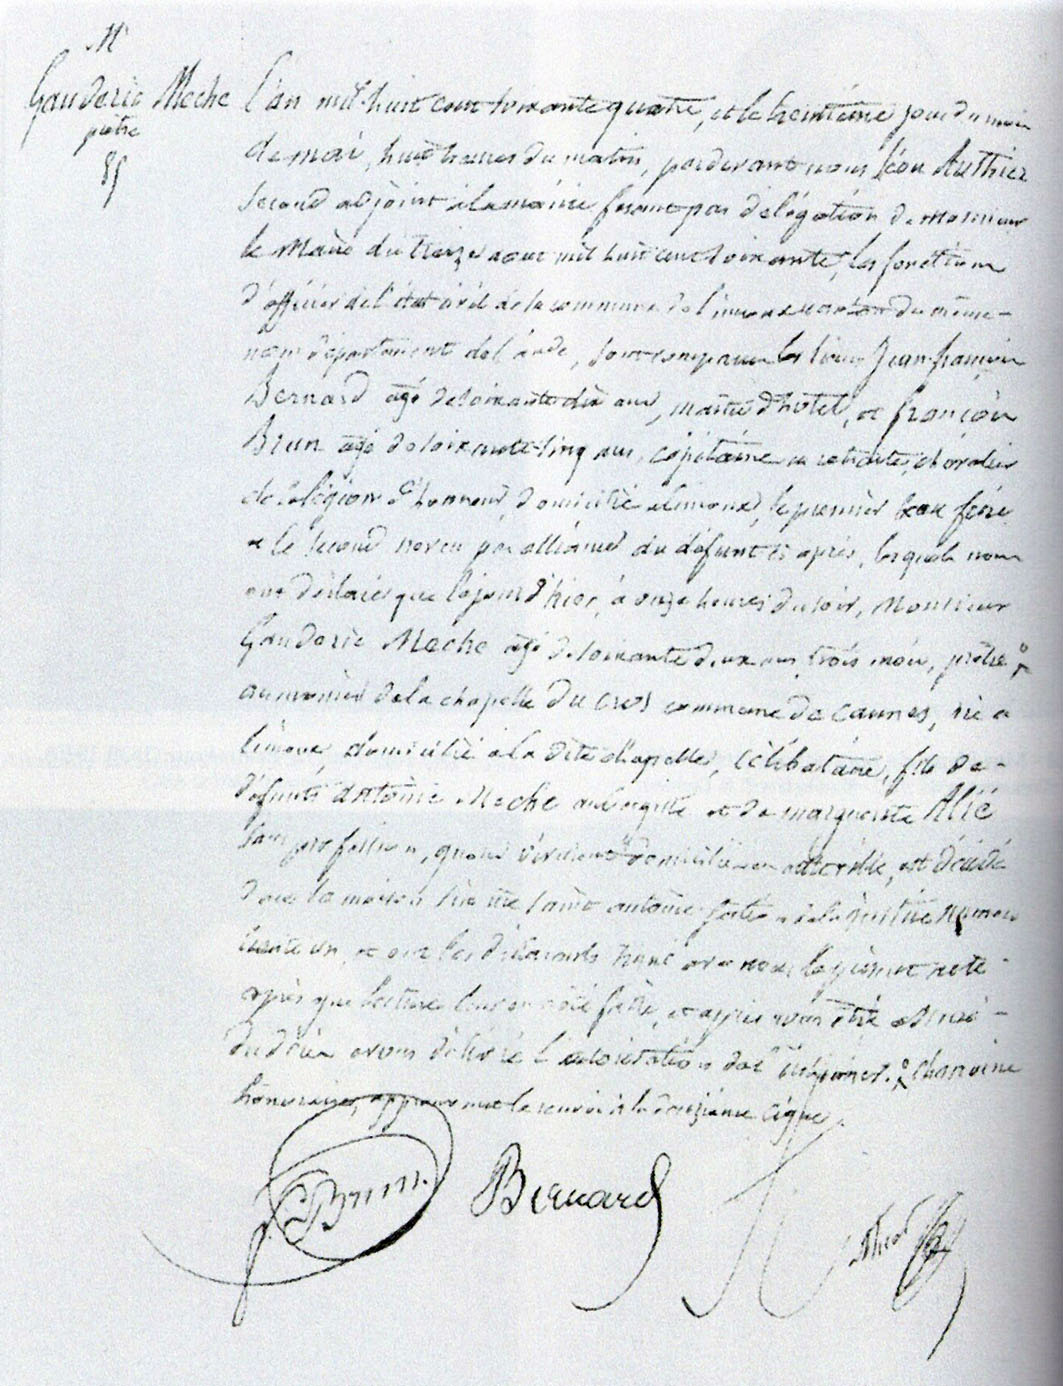 Mr
Gauderic Meche
prêtre
85
L'an mil huit cent soixante quatre, et le trentième jour du mois
de mai, huit heures du matin, pardevant nous Léon Authier
second adjoint à la mairie faisant par délégation de Monsieur
le Maire du treize aout mil huit cent soixante, les fonctions
d'officier de l'état civil de la commune de Limoux canton du même
nom département de l'aude, sont comparus les sieurs Jean françois
Bernard agé de soixante dix ans, maître d'hotel, et françois
Brun agé de soixante-cinq ans, capitaine en retraite, chevalier
de la légion d'honneur, domiciliés à Limoux, le premier beau frère
et le second neveu par alliance du défunt ci après, lesquels nous
ont déclaré que le jour d'hier, à onze heures du soir, Monsieur
Gauderic Meche agé de soixante deux ans trois mois, prêtre
aumonier de la chapelle du Cros commune de Caunes, né à
Limoux, domicilié à la dite chapelle, célibataire, fils de
défunts Antoine Meche aubergiste et de marguerite Alié
sans profession, quand vivaient domiciliés en cette ville, est décédé
dans la maison sise rue saint antoine de la justice numero
trente un, et ont les déclarants signé avec nous le présent acte
après que lecture leur en a été faite, et après nous être assuré
du décès avons délivré l'autorisation d'inhumer. chanoine
honoraire, approuvant le renvoi à la douzième ligne.
F Brun
Bernard
Authier